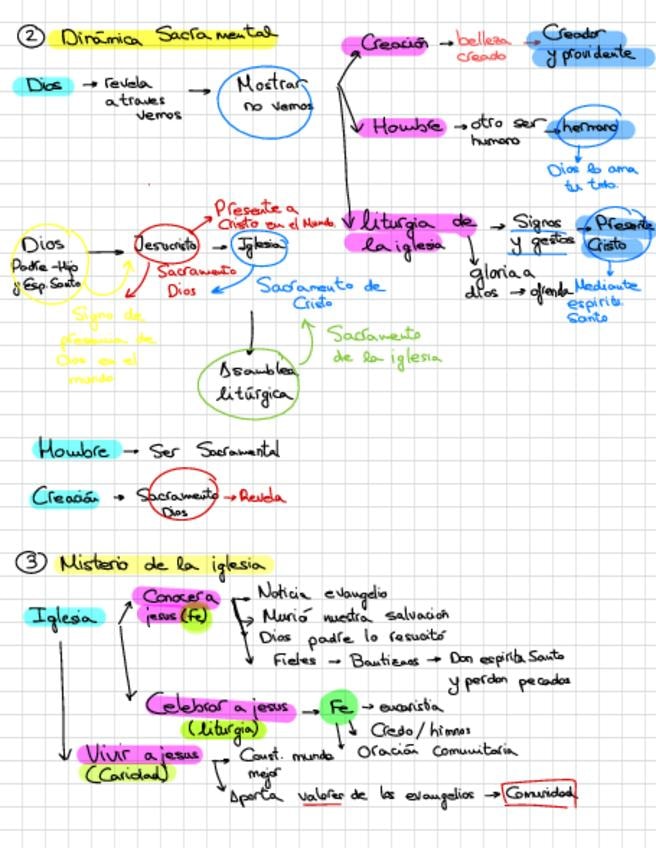 ② Dinámica Sacramental
Dios → revela
a traves
vemos
→ Mostrar
no vemos
Creación → belleza
creado
→ Creador
y providente
Hombre → otro ser
humano
→ hermano
Dios lo ama
liturgia de
la iglesia
→ Signos
y gestos
→ Presente
Cristo
gloria a
dios → ofrenda
Mediante
espiritu
Santo
Dios
Padre - Hijo
y Esp. Santo
→ Jesucristo → Iglesia
Presente a
Cristo en el Mundo
Sacramento
Dios
Sacramento de
Cristo
Signo de
presencia de
Dios en el
mundo
Asamblea
litúrgica
Sacramento
de la iglesia
Hombre → Ser Sacramental
Creación → Sacramento
Dios
→ Revela
③ Misterio de la iglesia
Iglesia
Conocer a
jesus (Fe)
Noticia evangelio
Murió nuestra salvación
Dios padre lo resucitó
Fieles → Bautizmos → Don espiritu Santo
y perdon pecados
Celebrar a jesus
(liturgia)
→ Fe → eucaristia
Credo / himnos
Oración comunitaria
Vivir a jesus
(Caridad)
Const. mundo
mejor
Aporta valores de los evangelios → Comunidad